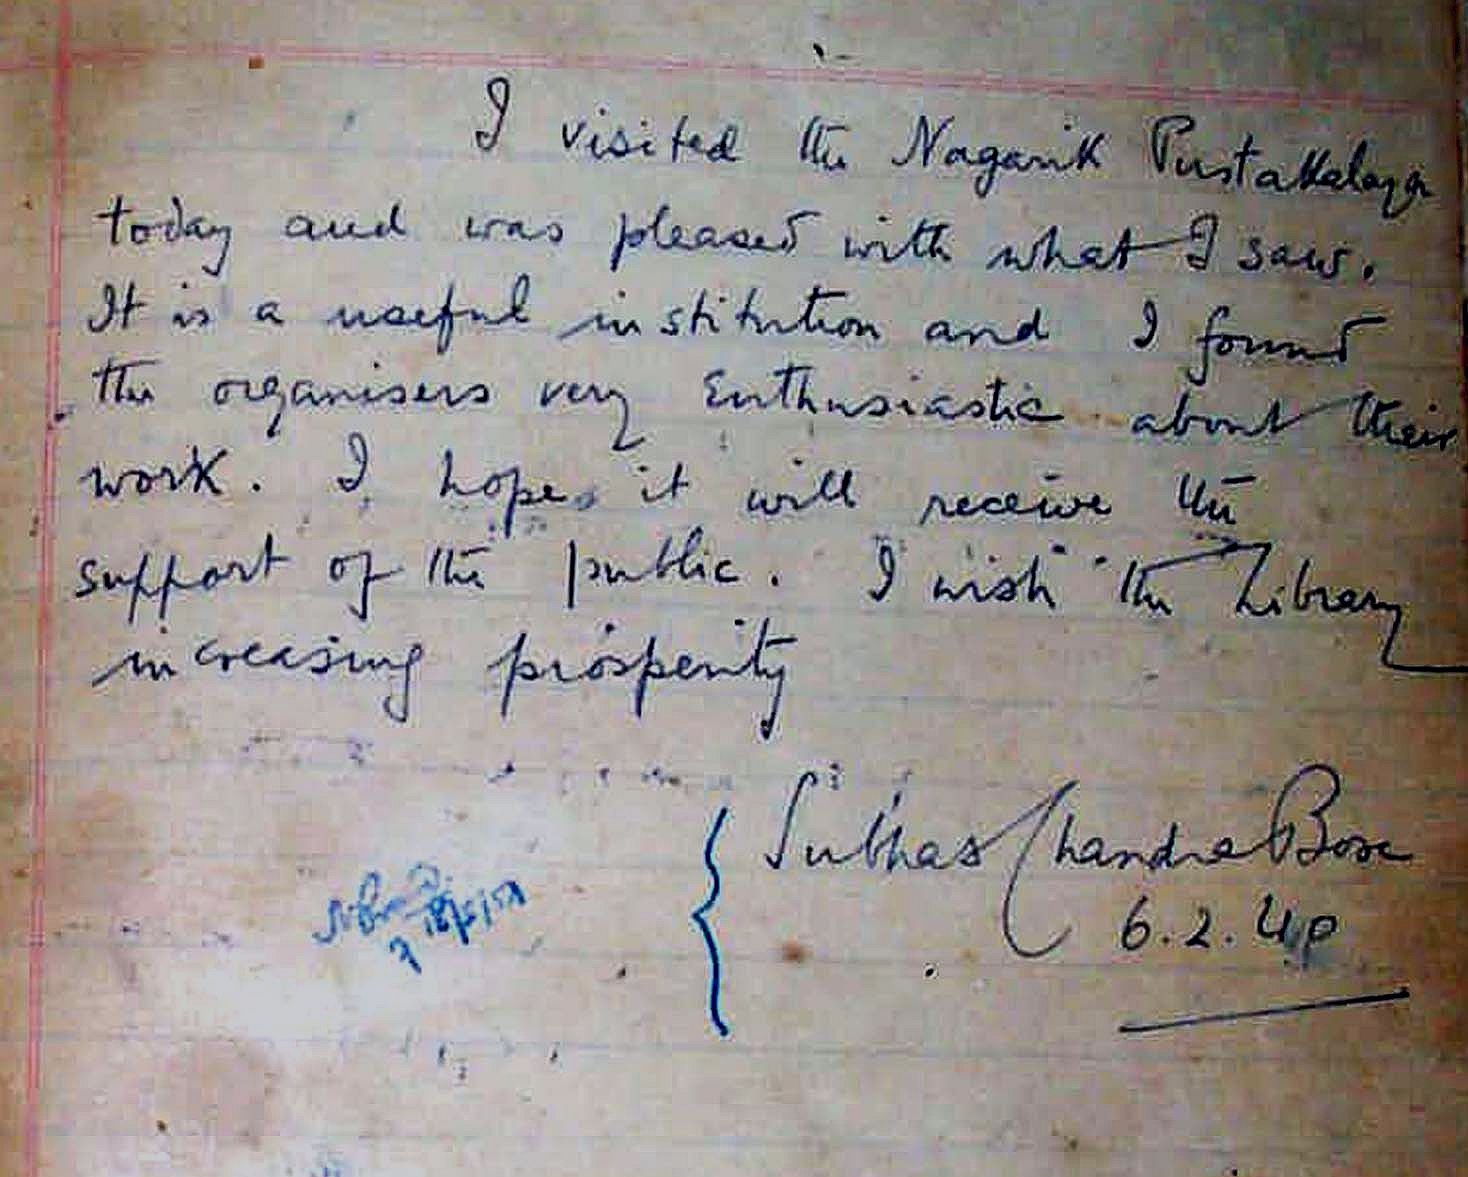 I visited the Nagarik Pustakalaya
today and was pleased with what I saw.
It is a useful institution and I found
the organisers very Enthusiastic about their
work. I hope it will receive the
support of the public. I wish the Library
increasing prosperity
Subhas Chandra Bose
6.2.40